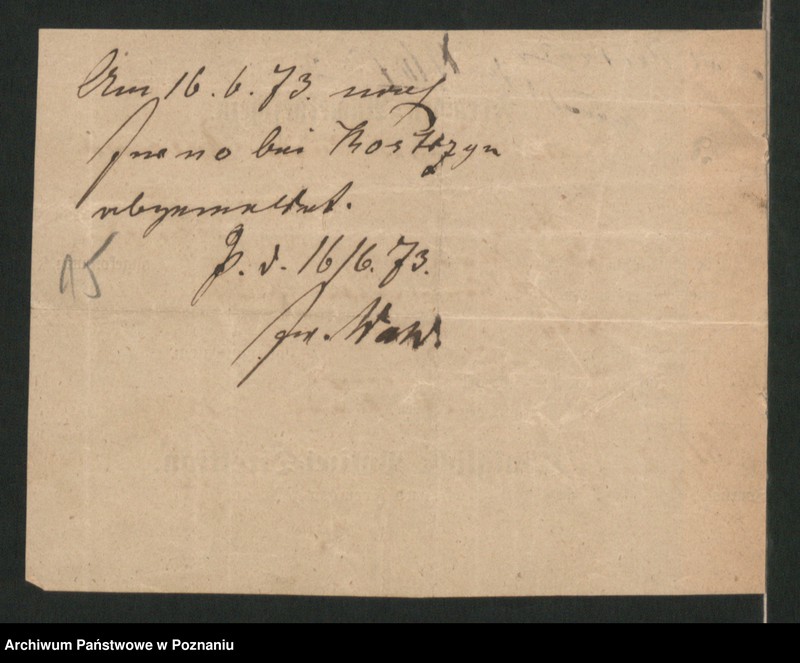 Am 16.6.73. nach
bei Kostrzyn
abgemeldet.
P. d. 16/6.73.
15
Archiwum Państwowe w Poznaniu